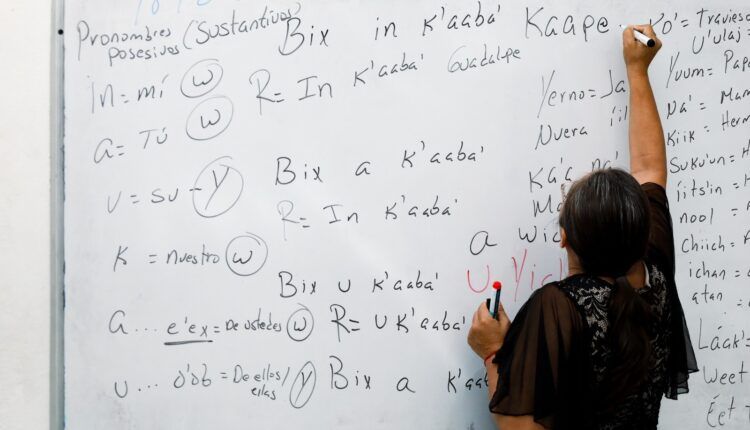 Pronombres
posesivos (Sustantivos)
in = mí (w)
a = TÚ (w)
U = SU - Y
K = nuestro (w)
a ... e'ex = De ustedes (w)
U ... o'ob = De ellos/ellas (Y)
Bix in K'aaba'
R = In K'aaba' Guadalpe
Bix a K'aaba'
R = In K'aaba'
Bix U K'aaba'
R = U K'aaba'
Bix a
Kaape
Yerno = Ja
Nuera
a
U
= Travieso
U'ulaj =
Yuum = Pap
Na' = Mam
Kiik = Herm
Suku'un = H
iits'in = H
nool =
Chiich =
ichan =
atan =
Láak' =
Weet
Éet